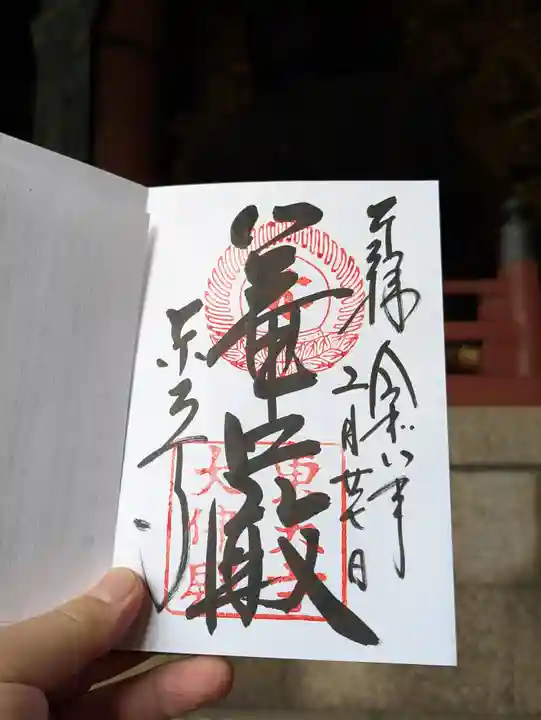 奉拝
令和八年
二月廿七日
華嚴
東大寺
東大寺
大佛殿